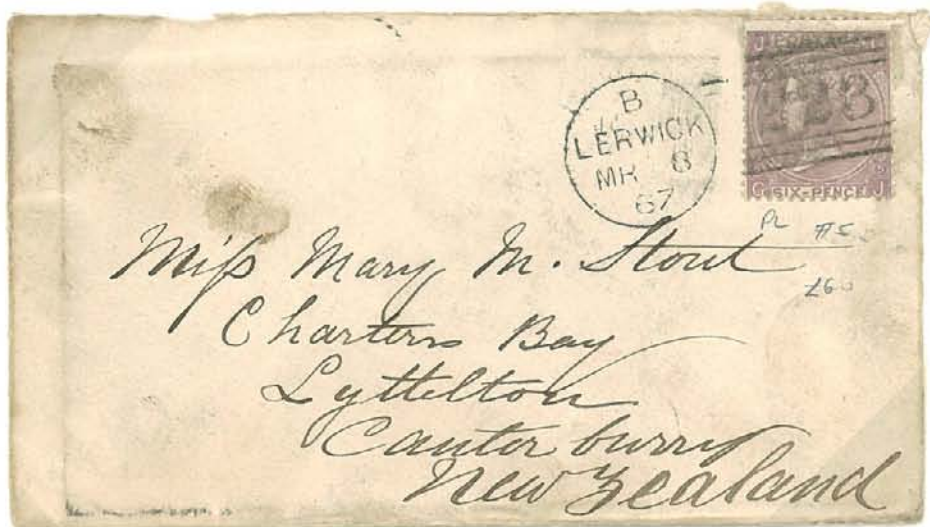 B
LERWICK
MR 8
67
J POSTAGE
G SIX-PENCE J
PL
£60
Miſs Mary M. Stout
Charters Bay
Lyttelton
Canterburry
New Zealand